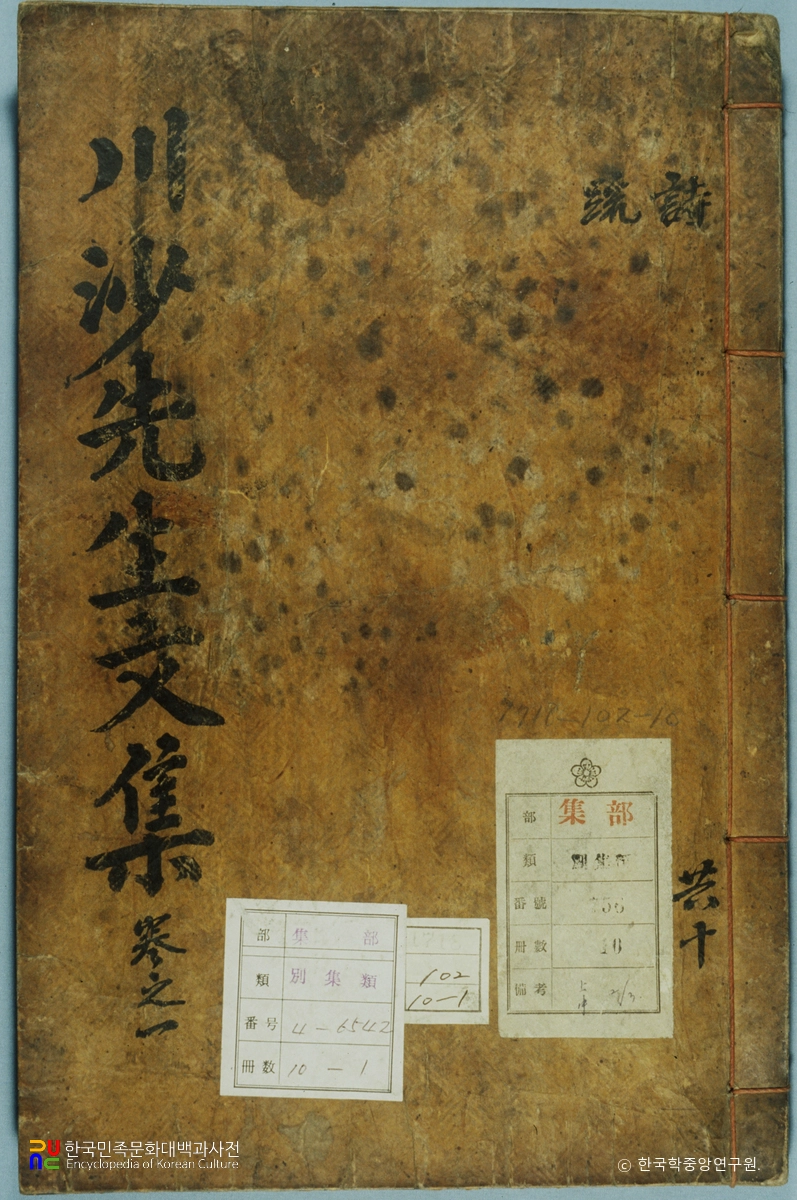 川沙先生文集 卷之一
詩
疏
共十
集部
部
類
番號
冊數
備考
部 集部
類 別集類
番号 4-6542
冊数 10-1
102
10-1
한국민족문화대백과사전
Encyclopedia of Korean Culture
© 한국학중앙연구원.